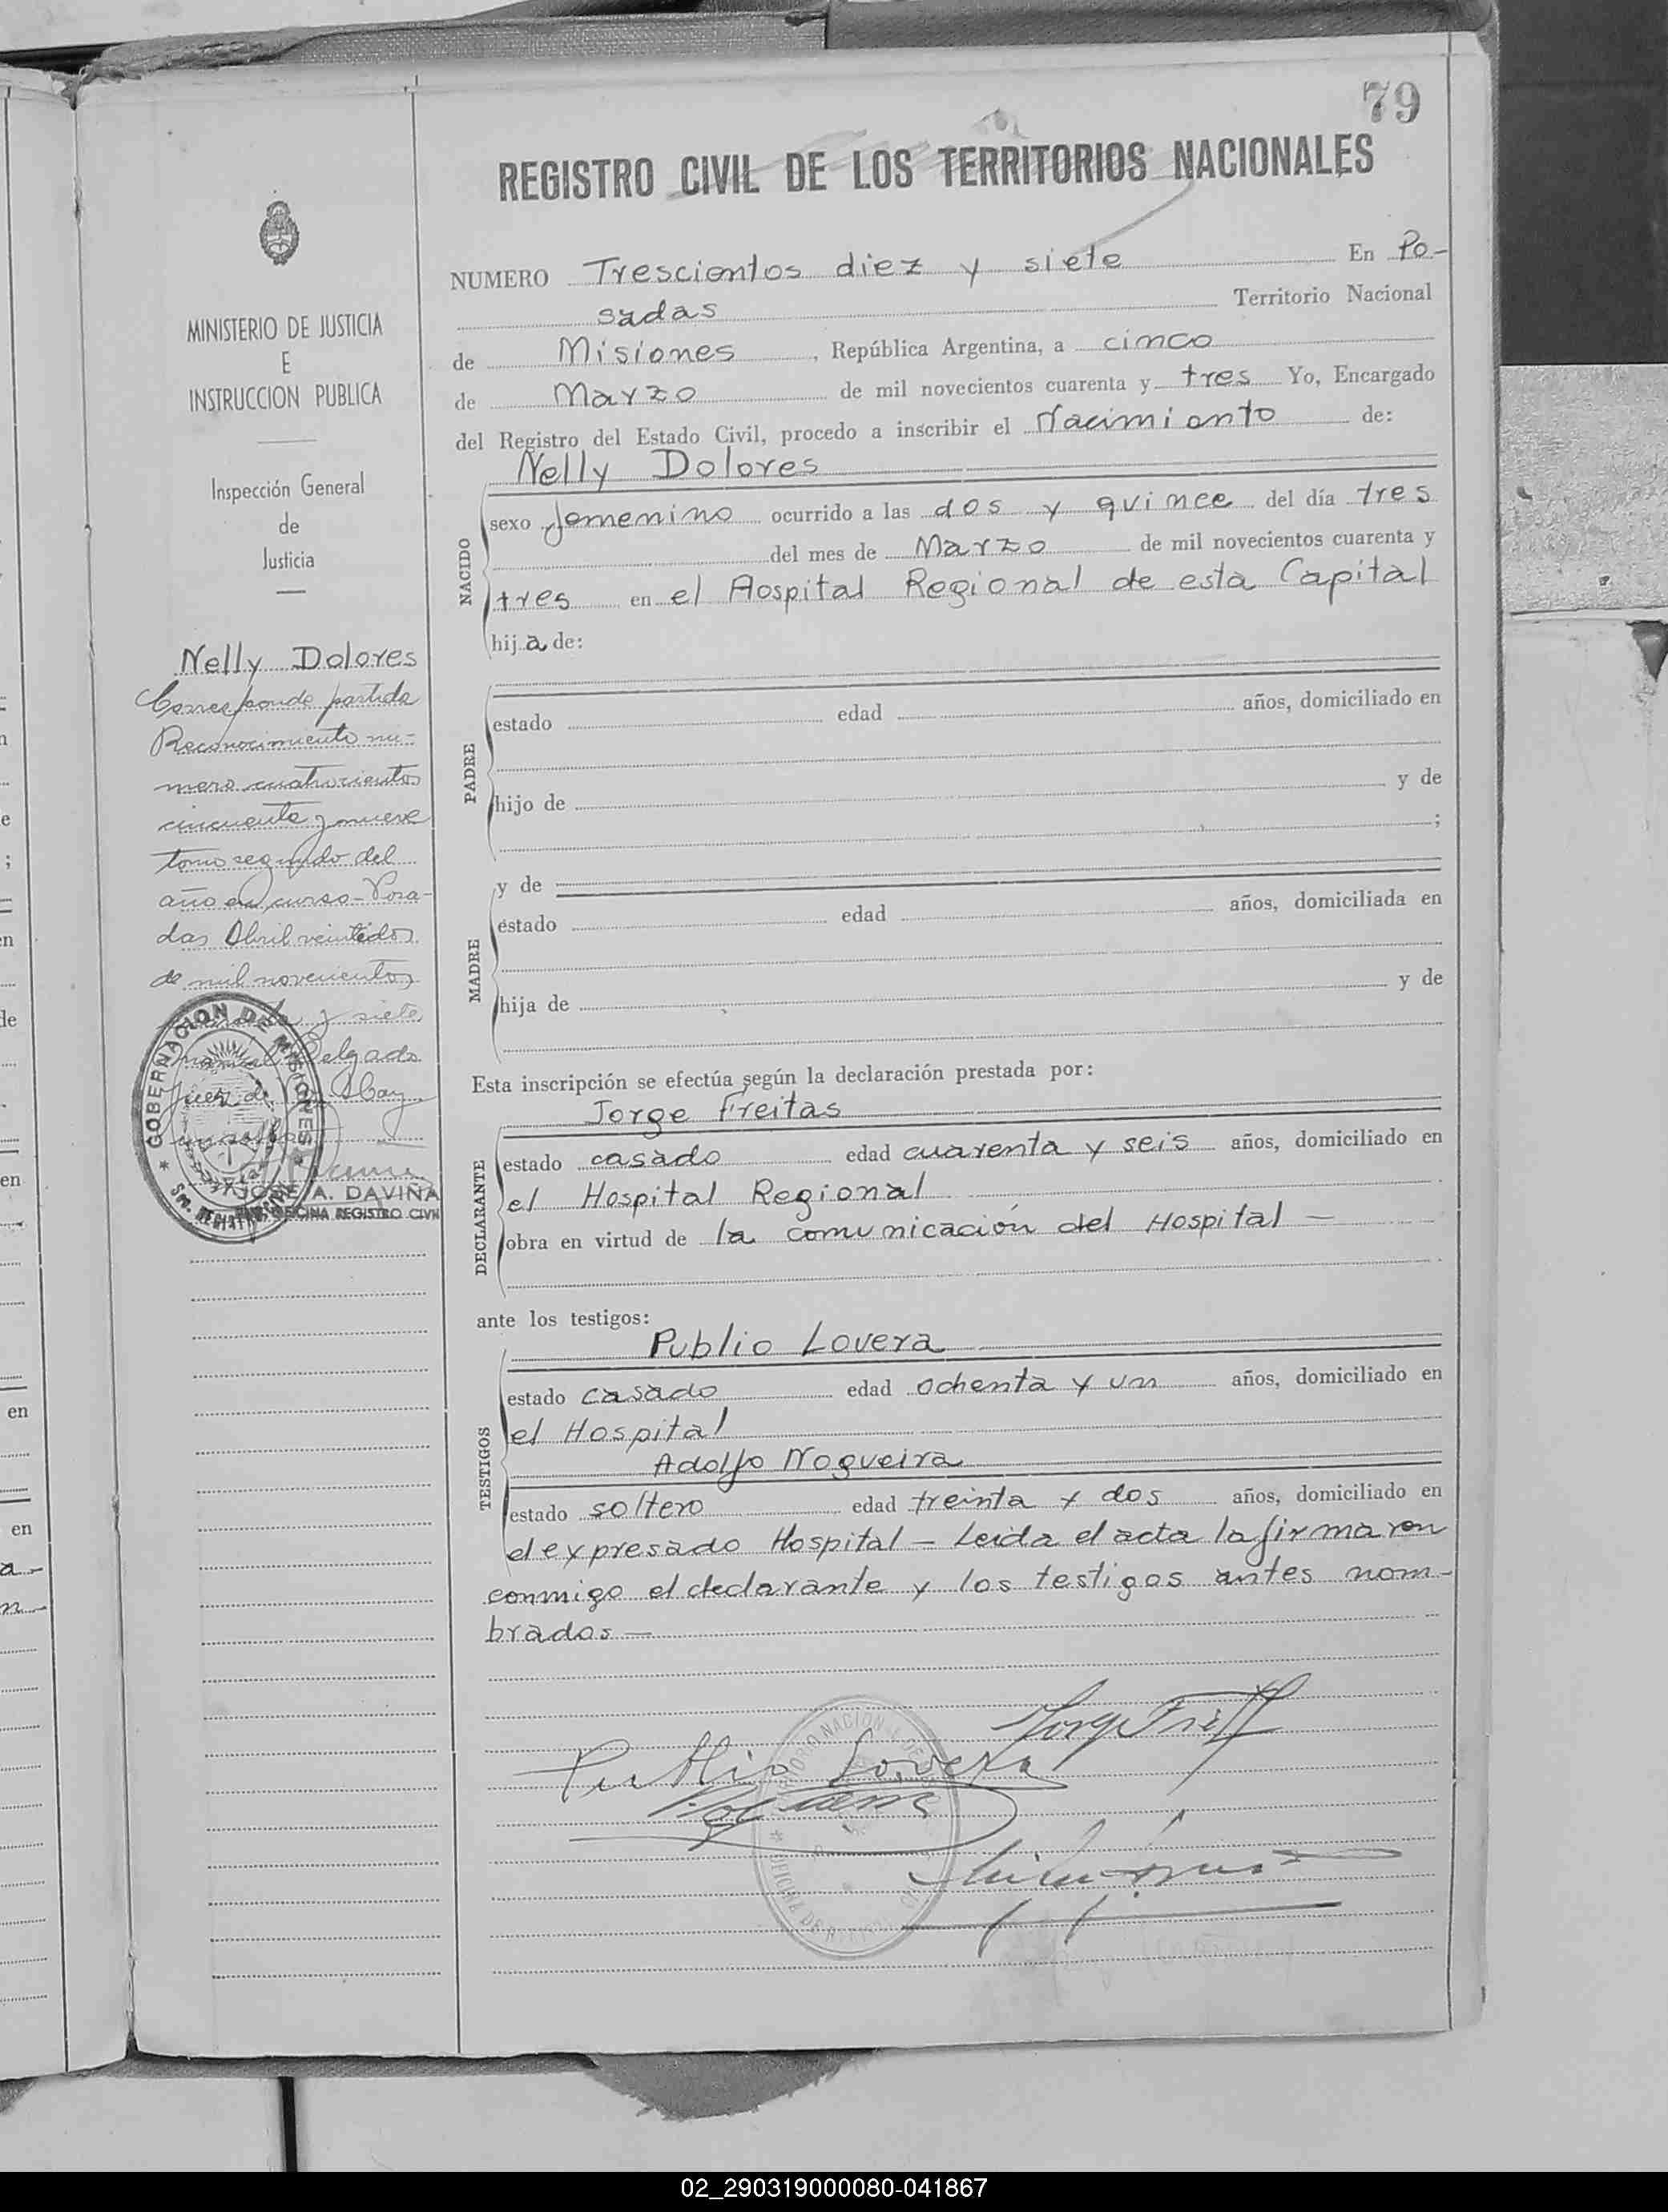 79
REGISTRO CIVIL DE LOS TERRITORIOS NACIONALES
MINISTERIO DE JUSTICIA
E
INSTRUCCION PUBLICA
Inspección General
de
Justicia
Nelly Dolores
Corresponde partida
Reconocimiento nu-
mero cuatrocientos
cincuenta y nueve
tomo segundo del
año en curso - Posa-
das Abril veintidos
de mil novecientos
y siete
Manuel Delgado
Juez de Paz
GOBERNACION DE MISIONES
JOSE A. DAVIÑA
OFICINA REGISTRO CIVIL
NUMERO Trescientos diez y siete En Po-
sadas Territorio Nacional
de Misiones, República Argentina, a cinco
de Marzo de mil novecientos cuarenta y tres Yo, Encargado
del Registro del Estado Civil, procedo a inscribir el Nacimiento de:
Nelly Dolores
NACIDO
sexo femenino ocurrido a las dos y quince del día tres
del mes de Marzo de mil novecientos cuarenta y
tres en el Hospital Regional de esta Capital
hija de:
PADRE
estado edad años, domiciliado en
hijo de y de
;
y de
MADRE
estado edad años, domiciliada en
hija de y de
Esta inscripción se efectúa según la declaración prestada por:
Jorge Freitas
DECLARANTE
estado casado edad cuarenta y seis años, domiciliado en
el Hospital Regional
obra en virtud de la comunicación del Hospital —
ante los testigos:
Publio Lovera
TESTIGOS
estado casado edad ochenta y un años, domiciliado en
el Hospital
Adolfo Nogueira
estado soltero edad treinta y dos años, domiciliado en
el expresado Hospital — Leida el acta la firmaron
conmigo el declarante y los testigos antes nom-
brados —
Jorge Freitas
Publio Lovera
02_290319000080-041867